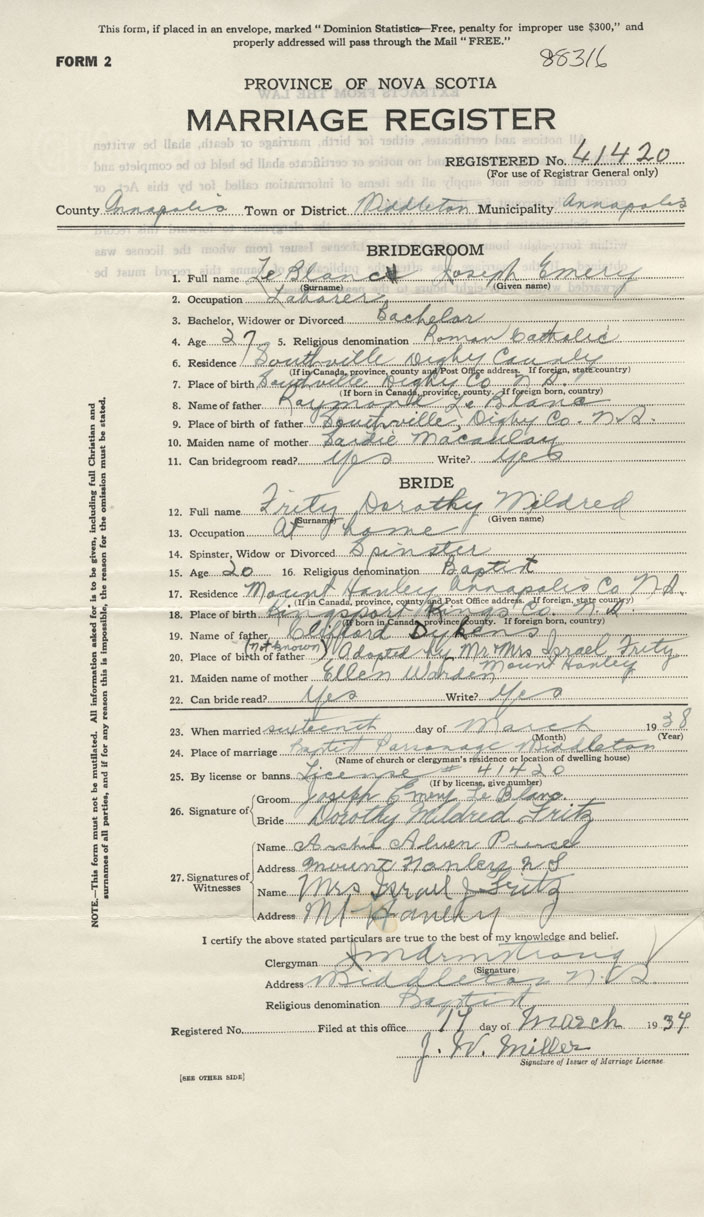 This form, if placed in an envelope, marked "Dominion Statistics—Free, penalty for improper use $300," and
properly addressed will pass through the Mail "FREE."
FORM 2
88316
PROVINCE OF NOVA SCOTIA
MARRIAGE REGISTER
REGISTERED No. 41420
(For use of Registrar General only)
County Annapolis Town or District Middleton Municipality Annapolis
BRIDEGROOM
1. Full name Le Blanc Joseph Emery
(Surname) (Given name)
2. Occupation Laborer
3. Bachelor, Widower or Divorced Bachelor
4. Age 27 5. Religious denomination Roman Catholic
6. Residence Southville Digby County
(If in Canada, province, county and Post Office address. If foreign, state country)
7. Place of birth Southville Digby Co. N.S.
(If born in Canada, province, county. If foreign born, country)
8. Name of father Raymond Le Blanc
9. Place of birth of father Southville, Digby Co. N.S.
10. Maiden name of mother Saidie
11. Can bridegroom read? Yes Write? Yes
BRIDE
12. Full name Fritz Dorothy Mildred
(Surname) (Given name)
13. Occupation At home
14. Spinster, Widow or Divorced Spinster
15. Age 20 16. Religious denomination Baptist
17. Residence Mount Hanley Annapolis Co N.S.
(If in Canada, province, county and Post Office address. If foreign, state country)
18. Place of birth Kingsport Kings Co. N.S
(If born in Canada, province, county. If foreign born, country)
19. Name of father Clifford Dykens
20. Place of birth of father (Not known) Adopted by Mr. Mrs Israel Fritz
Mount Hanley
21. Maiden name of mother Ellen Warden
22. Can bride read? Yes Write? Yes
23. When married sixteenth day of March 1938
(Month) (Year)
24. Place of marriage Baptist Parsonage Middleton
(Name of church or clergyman's residence or location of dwelling house)
25. By license or banns License # 41420
(If by license, give number)
26. Signature of
Groom Joseph Emery Le Blanc
Bride Dorothy Mildred Fritz
27. Signatures of Witnesses
Name
Address Mount Hanley N S
Name Mrs Israel J Fritz
Address Mt Hanley
I certify the above stated particulars are true to the best of my knowledge and belief.
Clergyman Armstrong
(Signature)
Address Middleton N.S.
Religious denomination Baptist
Registered No. Filed at this office 17 day of March 19
J. W. Miller
Signature of Issuer of Marriage License.
[SEE OTHER SIDE]
NOTE.—This form must not be mutilated. All information asked for is to be given, including full Christian and
surnames of all parties, and if for any reason this is impossible, the reason for the omission must be stated.